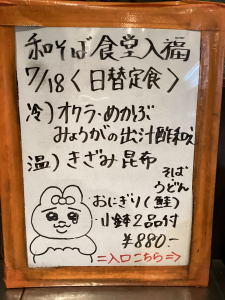 和そば食堂入福
7/18<日替定食>
冷)オクラ・めかぶ
みょうがの出汁酢和え
温)きざみ昆布
そば
うどん
おにぎり(鮭)
小鉢2品付
¥880-
=入口こちら=>